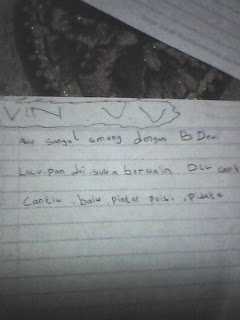 VIN V.V
aku sangat senang dengan B Dewi
Lucu, Pan di suka bermain DLL cant
Cantik, baik, pintar puisi, Pidato